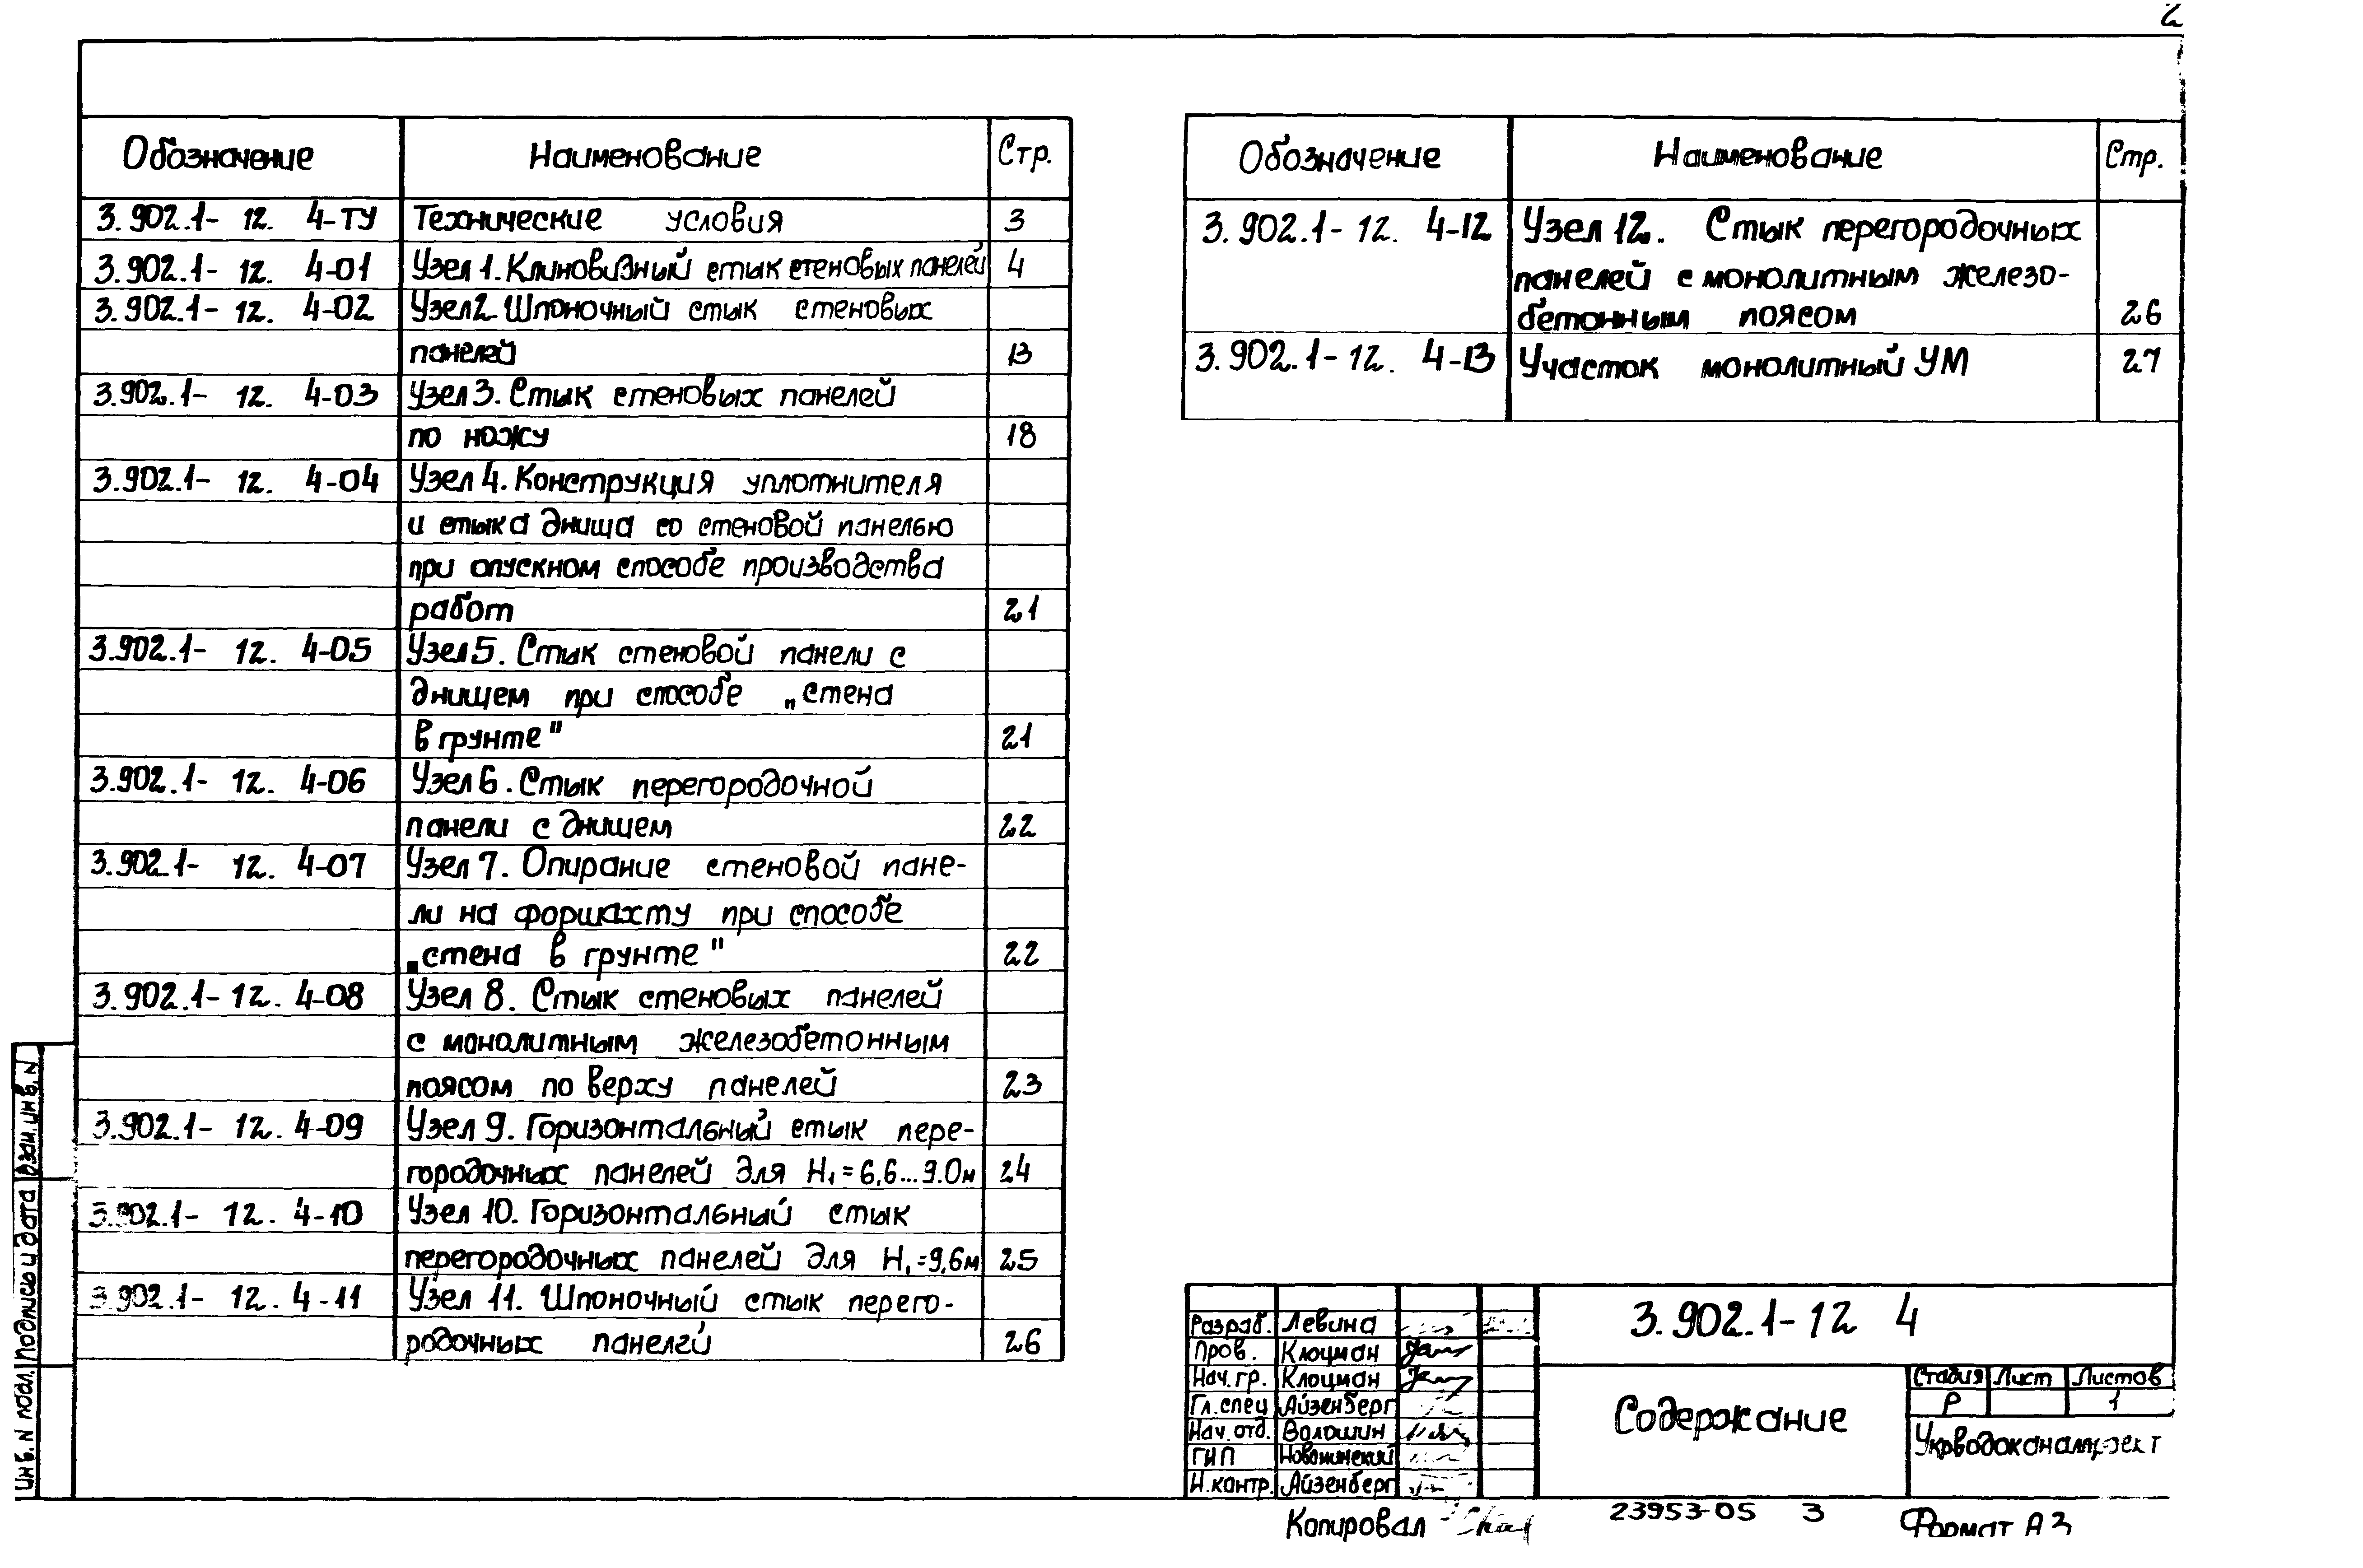 2
Обозначение Наименование Стр.
3.902.1- 12. 4-ТУ Технические условия 3
3.902.1- 12. 4-01 Узел 1. Клиновидный стык стеновых панелей 4
3.902.1- 12. 4-02 Узел 2. Шпоночный стык стеновых
панелей 13
3.902.1- 12. 4-03 Узел 3. Стык стеновых панелей
по ножу 18
3.902.1- 12. 4-04 Узел 4. Конструкция уплотнителя
и стыка днища со стеновой панелью
при опускном способе производства
работ 21
3.902.1- 12. 4-05 Узел 5. Стык стеновой панели с
днищем при способе „стена
в грунте" 21
3.902.1- 12. 4-06 Узел 6. Стык перегородочной
панели с днищем 22
3.902.1- 12. 4-07 Узел 7. Опирание стеновой пане-
ли на форшахту при способе
„стена в грунте" 22
3.902.1- 12. 4-08 Узел 8. Стык стеновых панелей
с монолитным железобетонным
поясом по верху панелей 23
3.902.1- 12. 4-09 Узел 9. Горизонтальный стык пере-
городочных панелей для H₁=6,6...9.0м 24
3.902.1- 12. 4-10 Узел 10. Горизонтальный стык
перегородочных панелей для H₁=9,6м 25
3.902.1- 12. 4-11 Узел 11. Шпоночный стык перего-
родочных панелей 26
Обозначение Наименование Стр.
3.902.1- 12. 4-12 Узел 12. Стык перегородочных
панелей с монолитным железо-
бетонным поясом 26
3.902.1- 12. 4-13 Участок монолитный УМ 27
Инв. N подл. Подпись и дата Взам. инв. N
3.902.1-12 4
Разраб. Левина
Пров. Клоцман
Нач. гр. Клоцман
Гл. спец Айзенберг
Нач. отд. Волошин
ГИП Новоминский
Н. контр. Айзенберг
Содержание
Стадия Лист Листов
Р 1
Укрводоканалпроект
Копировал 23953-05 3 Формат А3